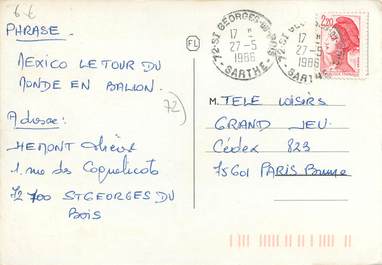 6€
PHRASE.
MEXICO LE TOUR DU
MONDE EN BALLON.
Adresse:
HEMONT
1. rue des Coquelicots
72 700 ST GEORGES DU
Bois
72
FL
72-ST GEORGES-DU-BOIS
17 H
27-5
1986
SARTHE
72-ST GEORGES-DU-BOIS
17 H
27-5
1986
SARTHE
2,20
M. TELE LOISIRS
GRAND JEU.
Cédex 823
75601 PARIS Brune